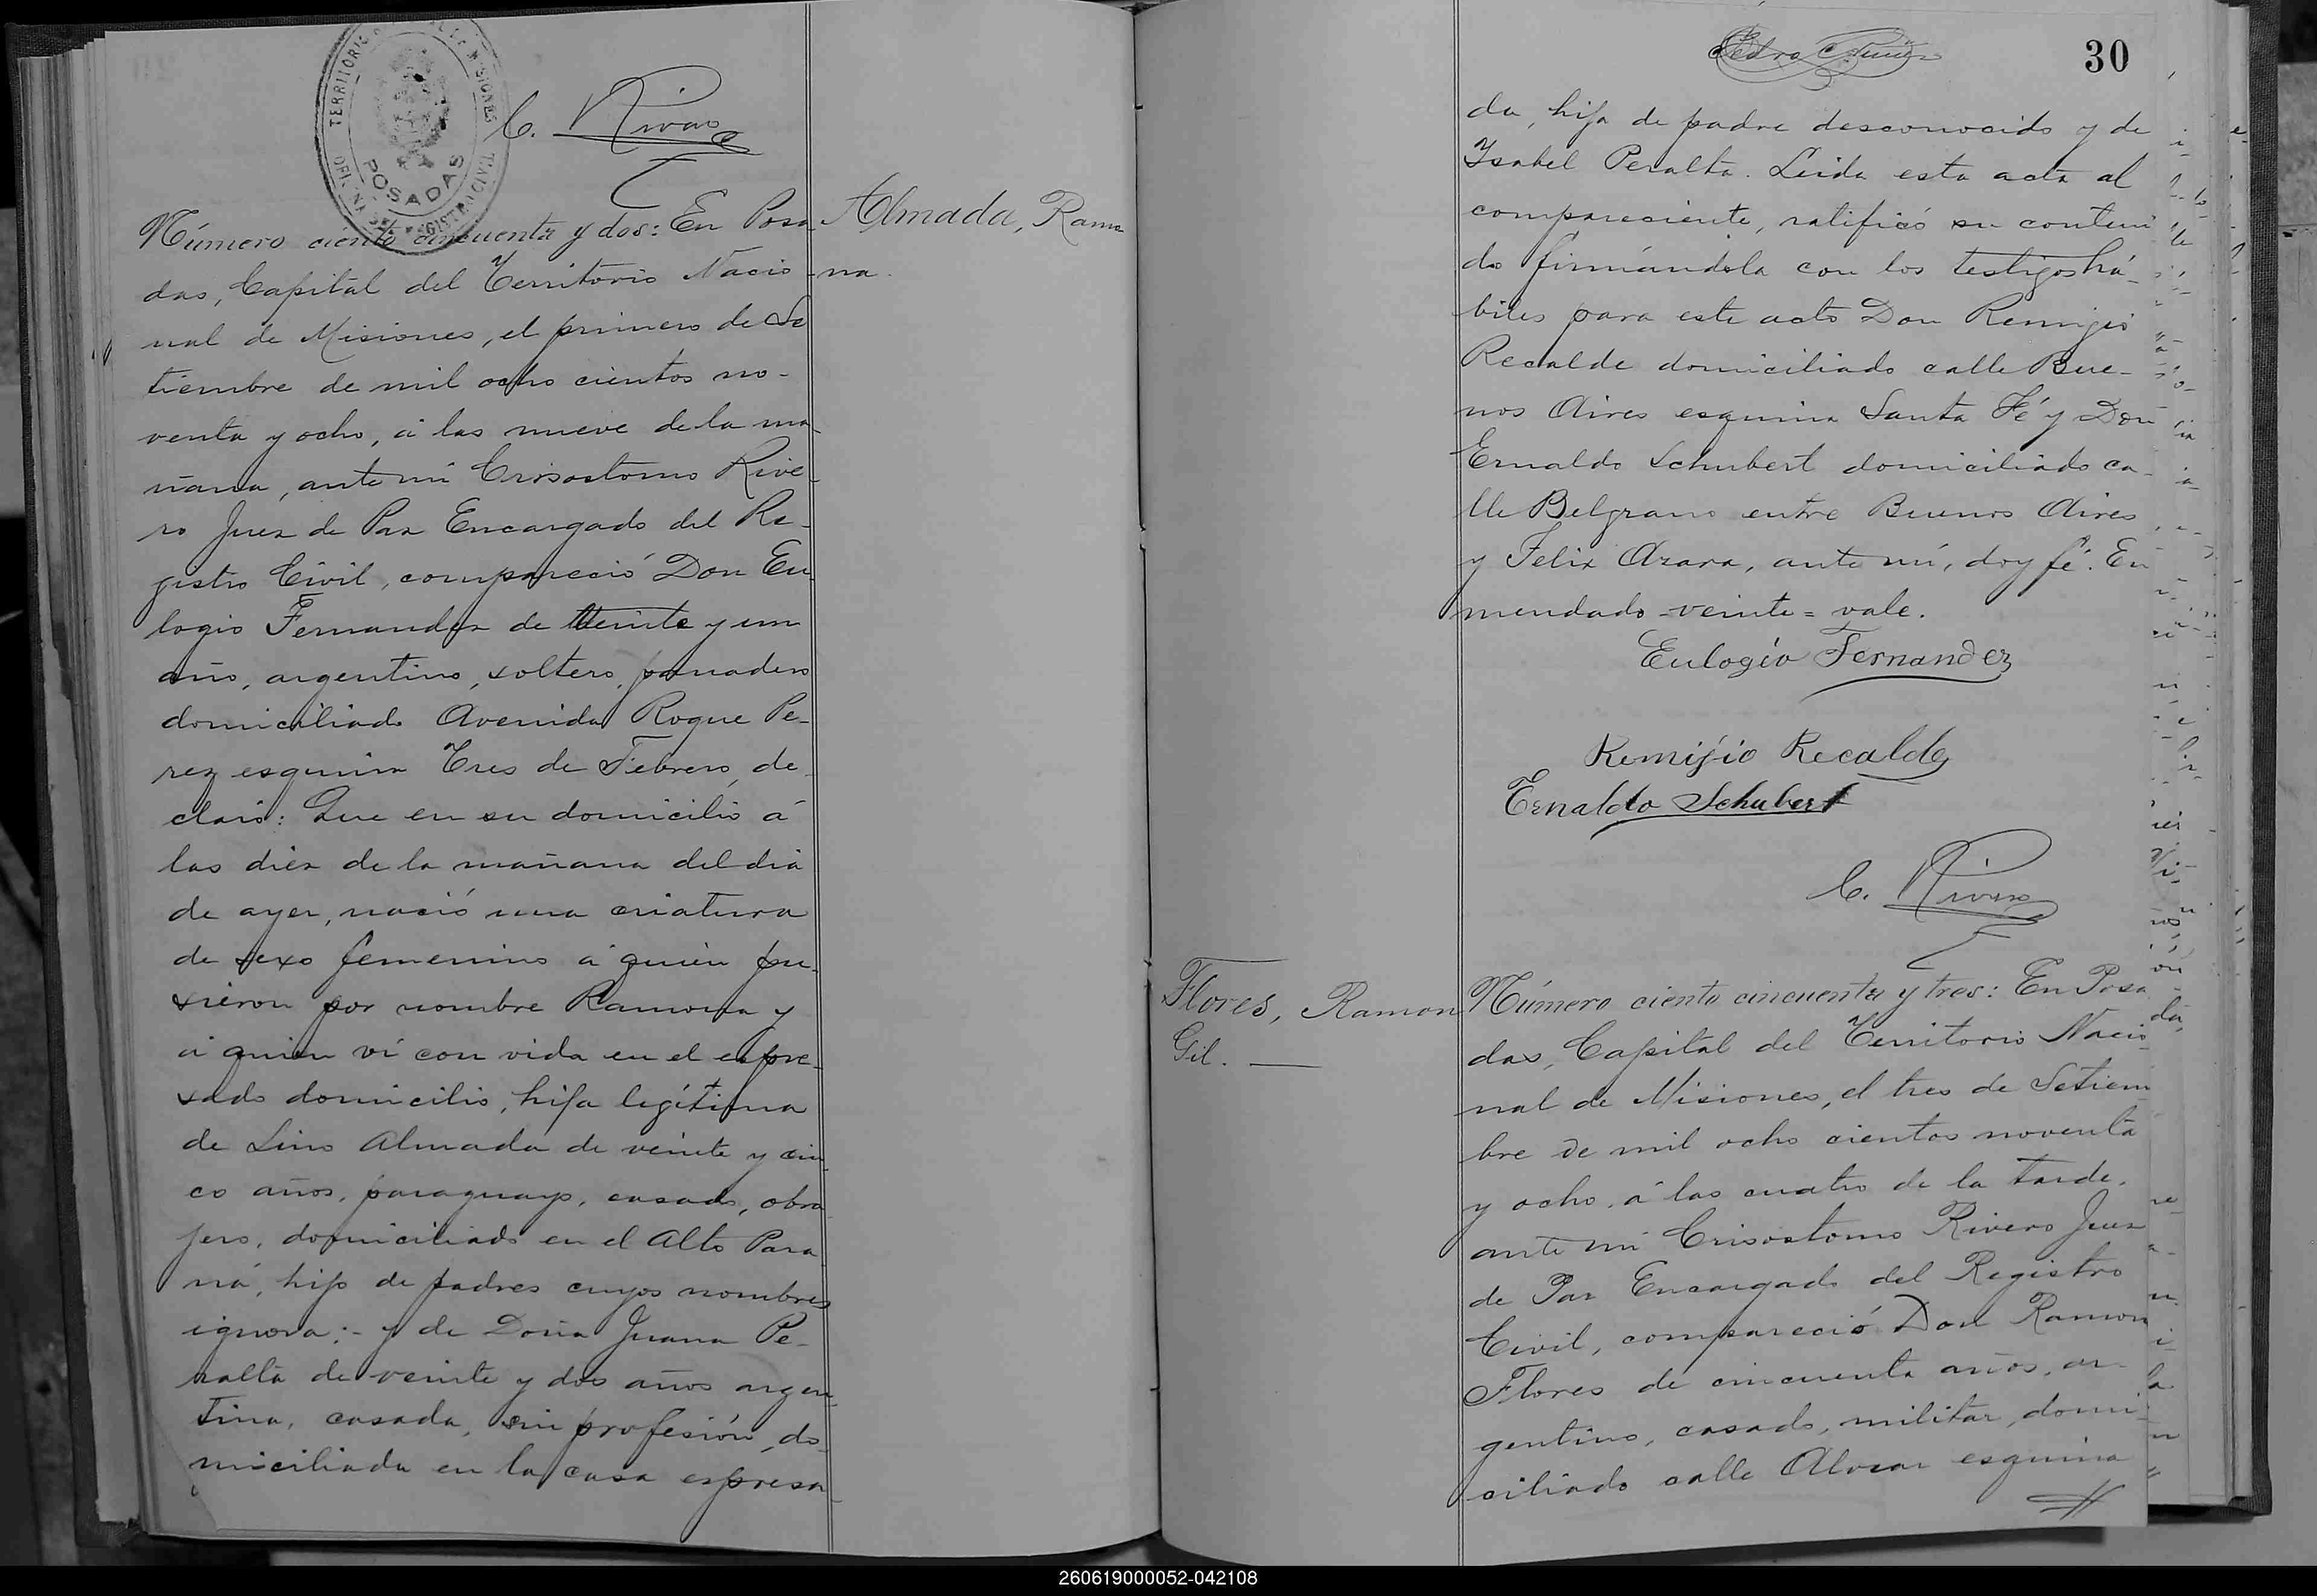 TERRITORIO
MISIONES
POSADAS
C. Rivero
Número ciento cincuenta y dos: En Posa
das, Capital del Territorio Nacio-
nal de Misiones, el primero de Se
tiembre de mil ocho cientos no-
venta y ocho, á las nueve de la ma-
ñana, ante mí Crisostomo Rive-
ro Juez de Paz Encargado del Re-
gistro Civil, compareció Don Eu
logio Fernandez de veinte y un
año, argentino, soltero, panadero
domiciliado Avenida Roque Pe-
rez esquina Tres de Febrero, de-
claró: Que en su domicilio á
las diez de la mañana del dia
de ayer, nació una criatura
de sexo femenino á quien pu-
sieron por nombre Ramona y
á quien ví con vida en el espre-
sado domicilio, hija legítima
de Lino Almada de veinte y cin-
co años, paraguayo, casado, obra
jero, domiciliado en el Alto Para
ná, hijo de padres cuyos nombres
ignora;- y de Doña Juana Pe-
ralta de veinte y dos años argen-
tina, casada, sin profesión, do-
miciliada en la casa espresa-
Almada, Ramo
na.
30
da, hija de padre desconocido y de
Ysabel Peralta. Leida esta acta al
compareciente, ratificó su conteni
do firmándola con los testigos há-
biles para este acto Don Remigio
Recalde domiciliado calle Bue-
nos Aires esquina Santa Fé y Don
Ernaldo Schubert domiciliado ca-
lle Belgrano entre Buenos Aires
y Felix Azara, ante mí, doy fé. En
mendado-veinte=vale.
Eulogio Fernandez
Remijio Recalde
Ernaldo Schubert
C. Rivero
Flores, Ramon
Gil.
Número ciento cincuenta y tres: En Posa
das, Capital del Territorio Nacio
nal de Misiones, el tres de Setiem
bre de mil ocho cientos noventa
y ocho, á las cuatro de la tarde,
ante mí Crisostomo Rivero Juez
de Paz Encargado del Registro
Civil, compareció Don Ramon
Flores de cincuenta años, ar-
gentino, casado, militar, domi-
ciliado calle Alvear esquina
260619000052-042108